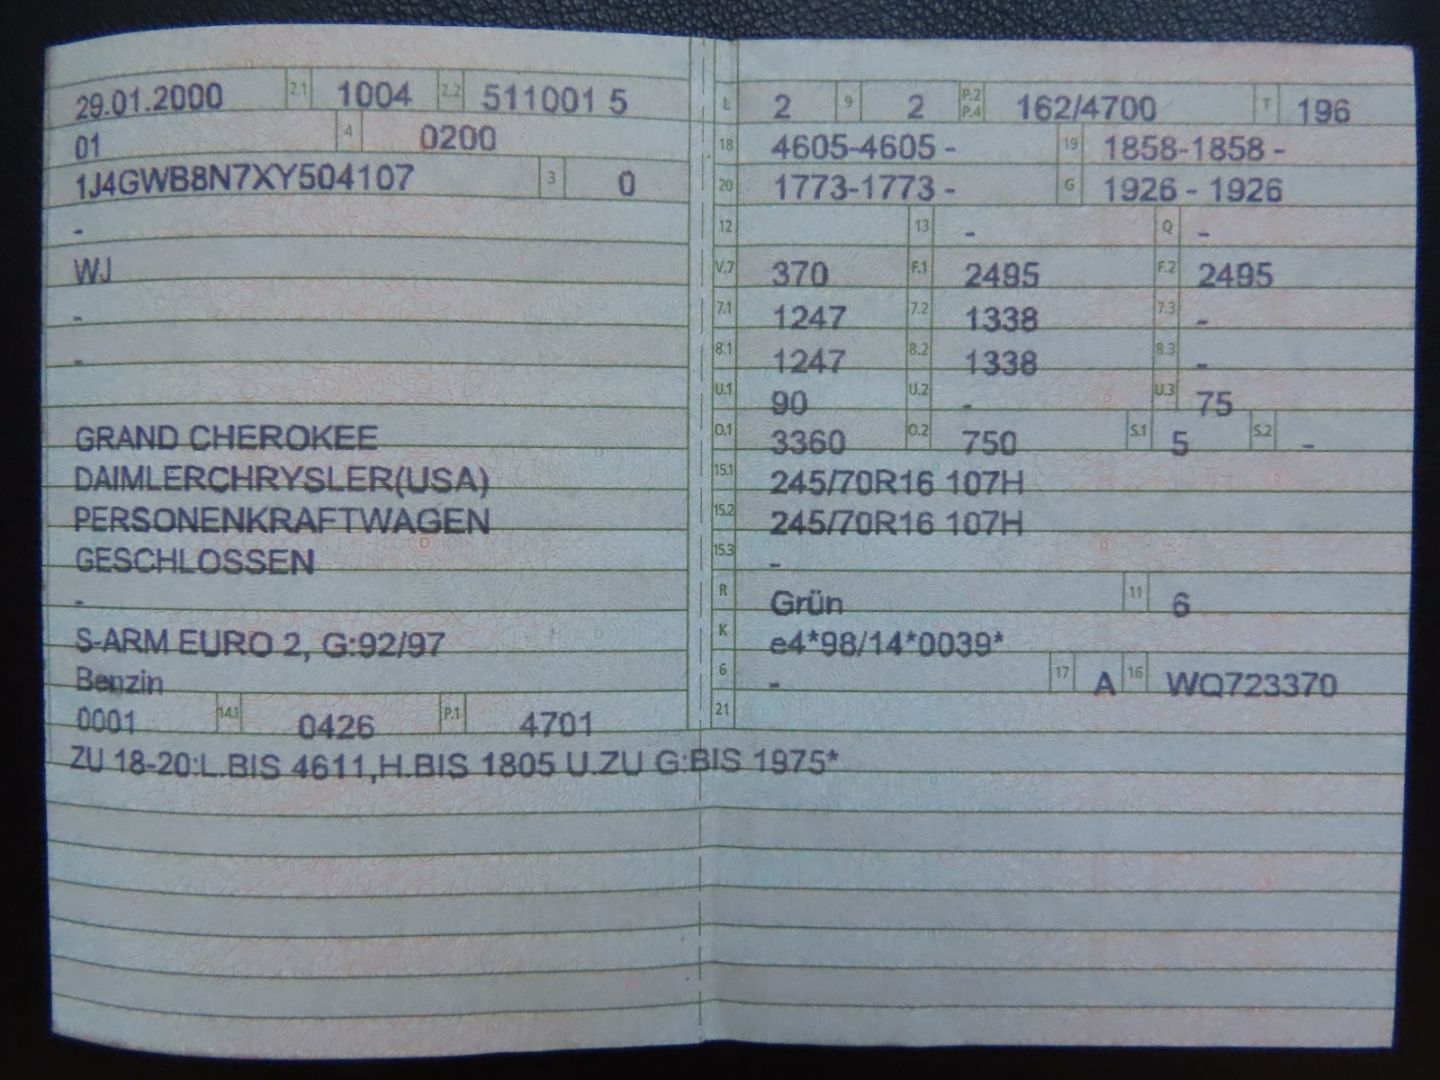 29.01.2000 2.1 1004 2.2 511001 5
01 4 0200
1J4GWB8N7XY504107 3 0
-
WJ
-
-
GRAND CHEROKEE
DAIMLERCHRYSLER(USA)
PERSONENKRAFTWAGEN
GESCHLOSSEN
-
S-ARM EURO 2, G:92/97
Benzin
0001 14.1 0426 P.1 4701
L 2 9 2 P.2 P.4 162/4700 T 196
18 4605-4605 - 19 1858-1858 -
20 1773-1773 - G 1926 - 1926
12 13 - Q -
V.7 370 F.1 2495 F.2 2495
7.1 1247 7.2 1338 7.3 -
8.1 1247 8.2 1338 8.3 -
U.1 90 U.2 - U.3 75
O.1 3360 O.2 750 S.1 5 S.2 -
15.1 245/70R16 107H
15.2 245/70R16 107H
15.3 -
R Grün 11 6
K e4*98/14*0039*
6 - 17 A 16 WQ723370
21
ZU 18-20:L.BIS 4611,H.BIS 1805 U.ZU G:BIS 1975*